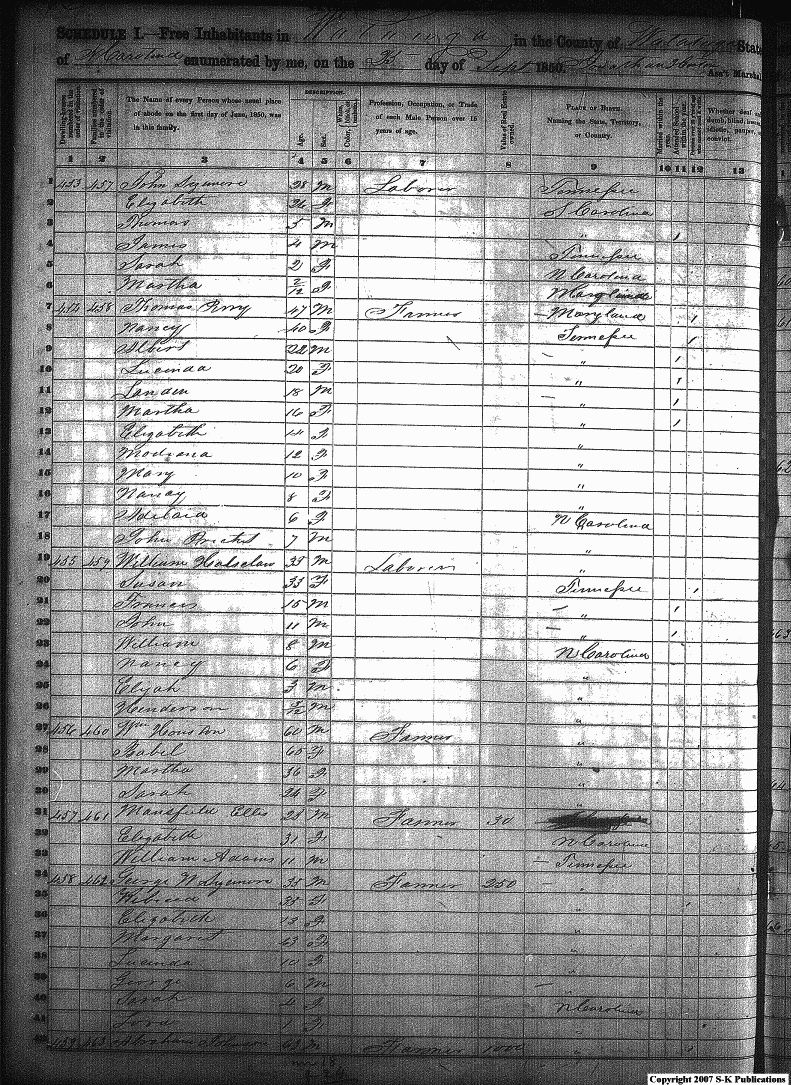 SCHEDULE I.—Free Inhabitants in Watauga in the County of Watauga State
of N Carolina enumerated by me, on the day of Sept 1850. Ass't Marshal
DESCRIPTION.
Dwelling-houses numbered in the order of visitation. Families numbered in the order of visitation. The Name of every Person whose usual place of abode on the first day of June, 1850, was in this family. Age. Sex. Color, Profession, Occupation, or Trade of each Male Person over 15 years of age. Value of Real Estate owned. PLACE OF BIRTH. Naming the State, Territory, or Country. Whether deaf and dumb, blind, insane, idiotic, pauper, or convict.
1 2 3 4 5 6 7 8 9 10 11 12 13
1 453 457 John 28 M Laborer Tennessee
2 Elizabeth 26 F S Carolina
3 Thomas 5 M " 1
4 James 4 M Tennessee
5 Sarah 2 F N Carolina
6 Martha 2/12 F
7 454 458 Thomas 47 M Farmer Maryland 1
8 Nancy 40 F Tennessee 1
9 Albert 22 M " 1
10 Lucinda 20 F " 1
11 Landen 18 M " 1
12 Martha 16 F " 1
13 Elizabeth 14 F "
14 Modiana 12 F "
15 Mary 10 F "
16 Nancy 8 F "
17 Adelaid 6 F N Carolina
18 John 7 M "
19 455 459 William 35 M Laborer "
20 Susan 33 F Tennessee 1
21 Francis 15 M " 1
22 John 11 M " 1
23 William 8 M N Carolina
24 Nancy 6 F "
25 Elijah 3 M "
26 Henderson M "
27 456 460 Wm Houston 60 M Farmer "
28 Isabel 65 F "
29 Martha 36 F "
30 Sarah 24 F "
31 457 461 Mansfield Ellis 28 M Farmer 30
32 Elizabeth 31 F N Carolina
33 William Adams 11 M Tennessee
34 458 462 George W 35 M Farmer 250 "
35 35 F "
36 Elizabeth 13 F "
37 Margaret F "
38 Lucinda 10 F "
39 George 6 M
40 Sarah 4 F N Carolina
41 1 F "
42 459 463 Abraham Johnson 63 M Farmer 1000 "
Copyright 2007 S-K Publications